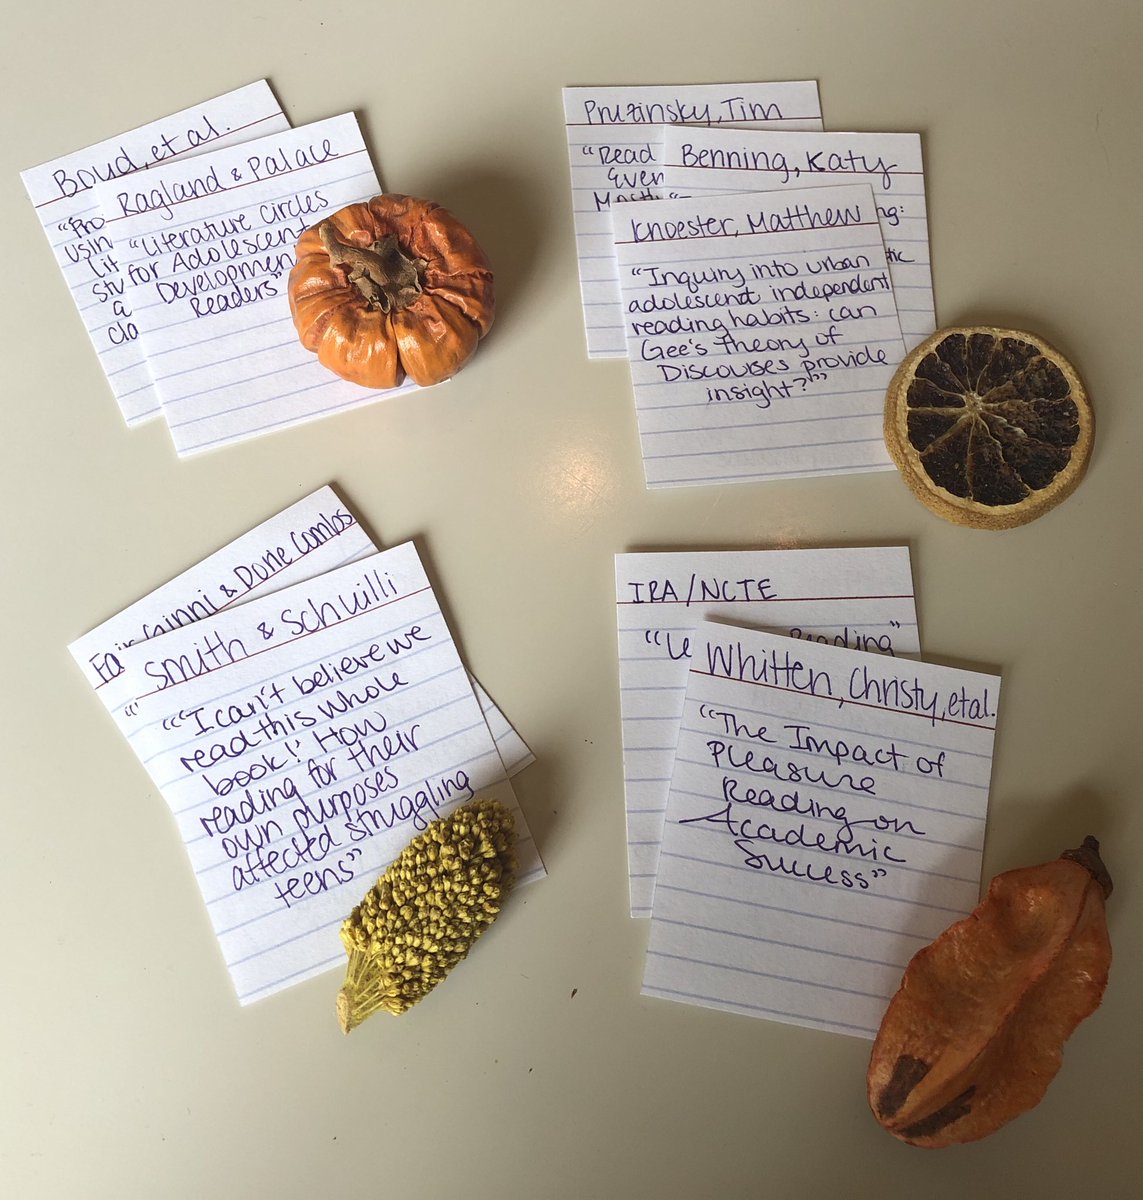 Boyd, et al.
"Pro
usin
lit
stu
a
cla
Ragland & Palace
"Literature Circles
for Adolescent
Developmen
Readers"
Pruzinsky, Tim
"Read
Even
Mostly
Benning, Katy
ng:
tic
Knoester, Matthew
"Inquiry into urban
adolescent independent
reading habits: can
Gee's Theory of
Discourses provide
insight?"
Fair, Ginni & Dorie Combs
Smith & Schwilli
"'I can't believe we
read this whole
book!' How
reading for their
own purposes
affected struggling
teens"
IRA/NCTE
"Le Reading"
Whitten, Christy, et al.
"The Impact of
Pleasure
Reading on
Academic
Success"